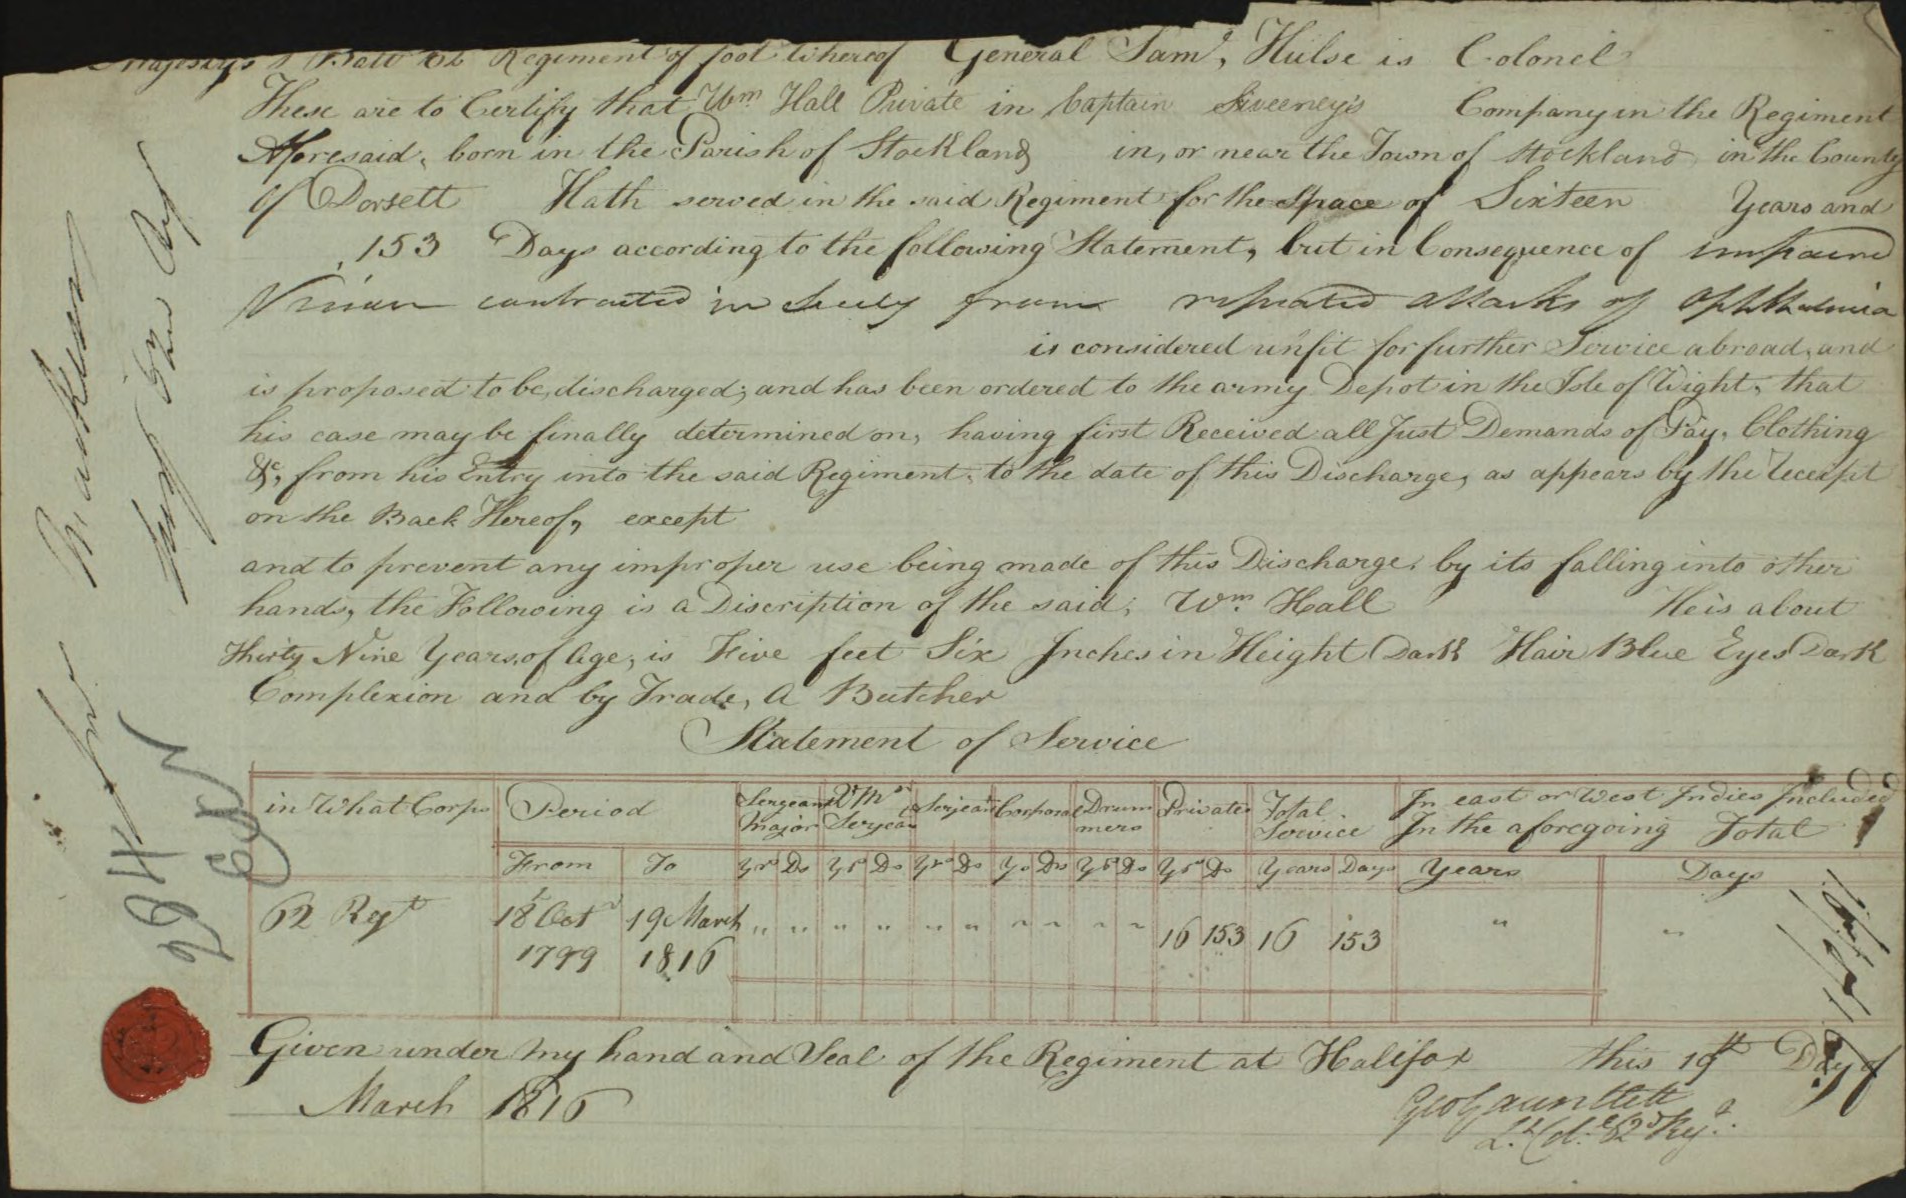 Majesty's 1 Batt 62 Regiment of foot Whereof General Saml, Hulse is Colonel
These are to Certify that Wm Hall Private in Captain Sweeney's Company in the Regiment
Aforesaid, born in the Parish of Stockland in, or near the Town of Stockland in the County
Of Dorsett Hath served in the said Regiment for the Space of Sixteen Years and
153 Days according to the following Statement, but in Consequence of impaired
Vision contracted in Sicily from repeated attacks of Ophthalmia
is considered unfit for further Service abroad, and
is proposed to be, discharged; and has been ordered to the army Depot in the Isle of Wight, that
his case may be finally determined on, having first Received all Just Demands of Pay, Clothing
&c, from his Entry into the said Regiment, to the date of this Discharge, as appears by the Receipt
on the Back Hereof, except
and to prevent any improper use being made of this Discharge, by its falling into other
hands, the Following is a Discription of the said, Wm Hall He is about
Thirty Nine Years, of Age, is Five feet Six Inches in Height Dark Hair Blue Eyes Dark
Complexion and by Trade, A Butcher
Statement of Service
in What Corps Period Sergeant Major Qr Mr Serjeant Serjeant Corporal Drummers Private Total Service In east or West Indies Included In the aforegoing Total
From To Yrs Ds Yrs Ds Yrs Ds Ys Ds Yrs Ds Yrs Ds Years Days Years Days
62 Regt 18 Oct 19 March " " " " " " " " " " 16 153 16 153 " "
1799 1816
Given under my hand and Seal of the Regiment at Halifax this 19th Day of
March 1816
Geo Gauntlett
Lt Col. 62d Regt.